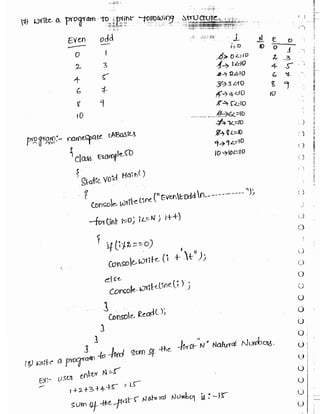 (17) write a program to print following structure.
Even odd
0 1
2 3
4 5
6 7
8 9
10
i N E O
i=0 10 0 1
0<=10 2 3
1<=10 4 5
2<=10 6 7
3<=10 8 9
4<=10 10
5<=10
6<=10
7<=10
8<=10
9→9<=10
10→10<=10
program:- namespace CABasics
{
class Example5D
{
static void Main()
{
Console.WriteLine("Even\t odd\n------------");
for(int i=0; i<=N; i++)
{
if(i%2==0)
Console.Write(i + "\t");
else
Console.WriteLine(i);
}
Console.Read();
}
}
}
(18) write a program to find sum of the first "N" Natural Numbers.
Ex:- user enter N=5
1+2+3+4+5 = 15
sum of the first 5 Natural Number is :- 15